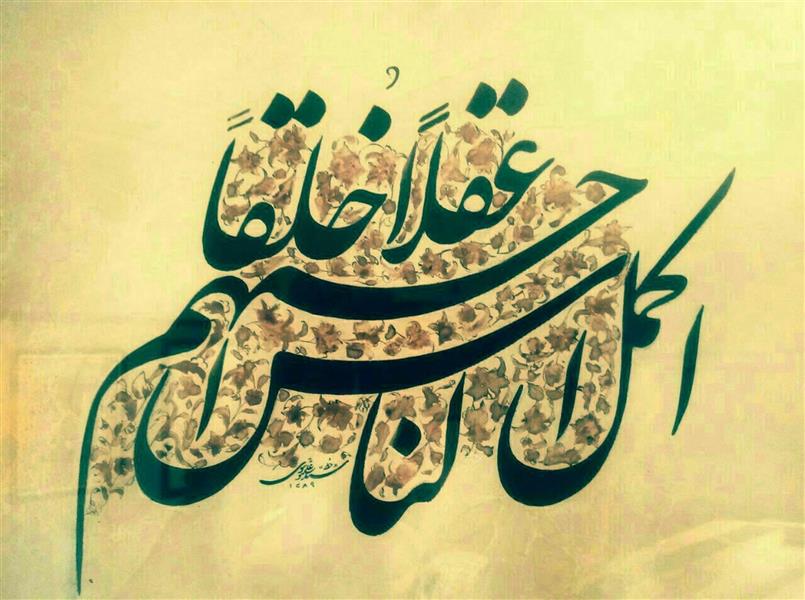 اکمل الناس عقلاً احسنهم خُلقاً
۱۳۸۹